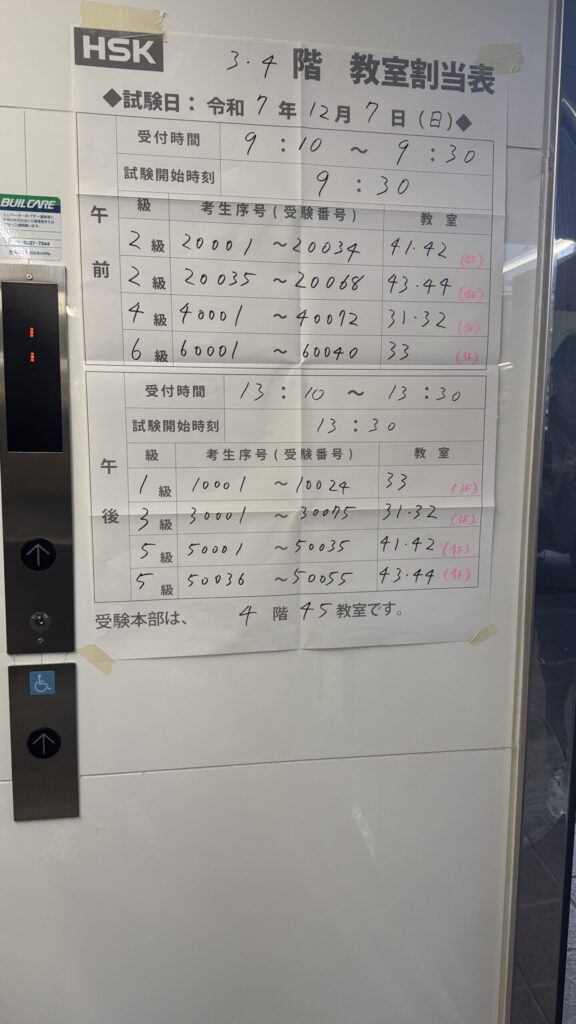 HSK
3・4 階 教室割当表
◆試験日：令和 7 年 12 月 7 日（日）◆
午前
受付時間 9：10 〜 9：30
試験開始時刻 9：30
級 考生序号(受験番号) 教室
2級 20001 〜20034 41.42 (4F)
2級 20035 〜20068 43.44 (4F)
4級 40001 〜40072 31.32 (3F)
6級 60001 〜60040 33 (3F)
午後
受付時間 13：10 〜 13：30
試験開始時刻 13：30
級 考生序号(受験番号) 教室
1級 10001 〜10024 33 (3F)
3級 30001 〜30075 31.32 (3F)
5級 50001 〜50035 41.42 (4F)
5級 50036 〜50055 43.44 (4F)
受験本部は、 4 階 45 教室です。
BUIL CARE